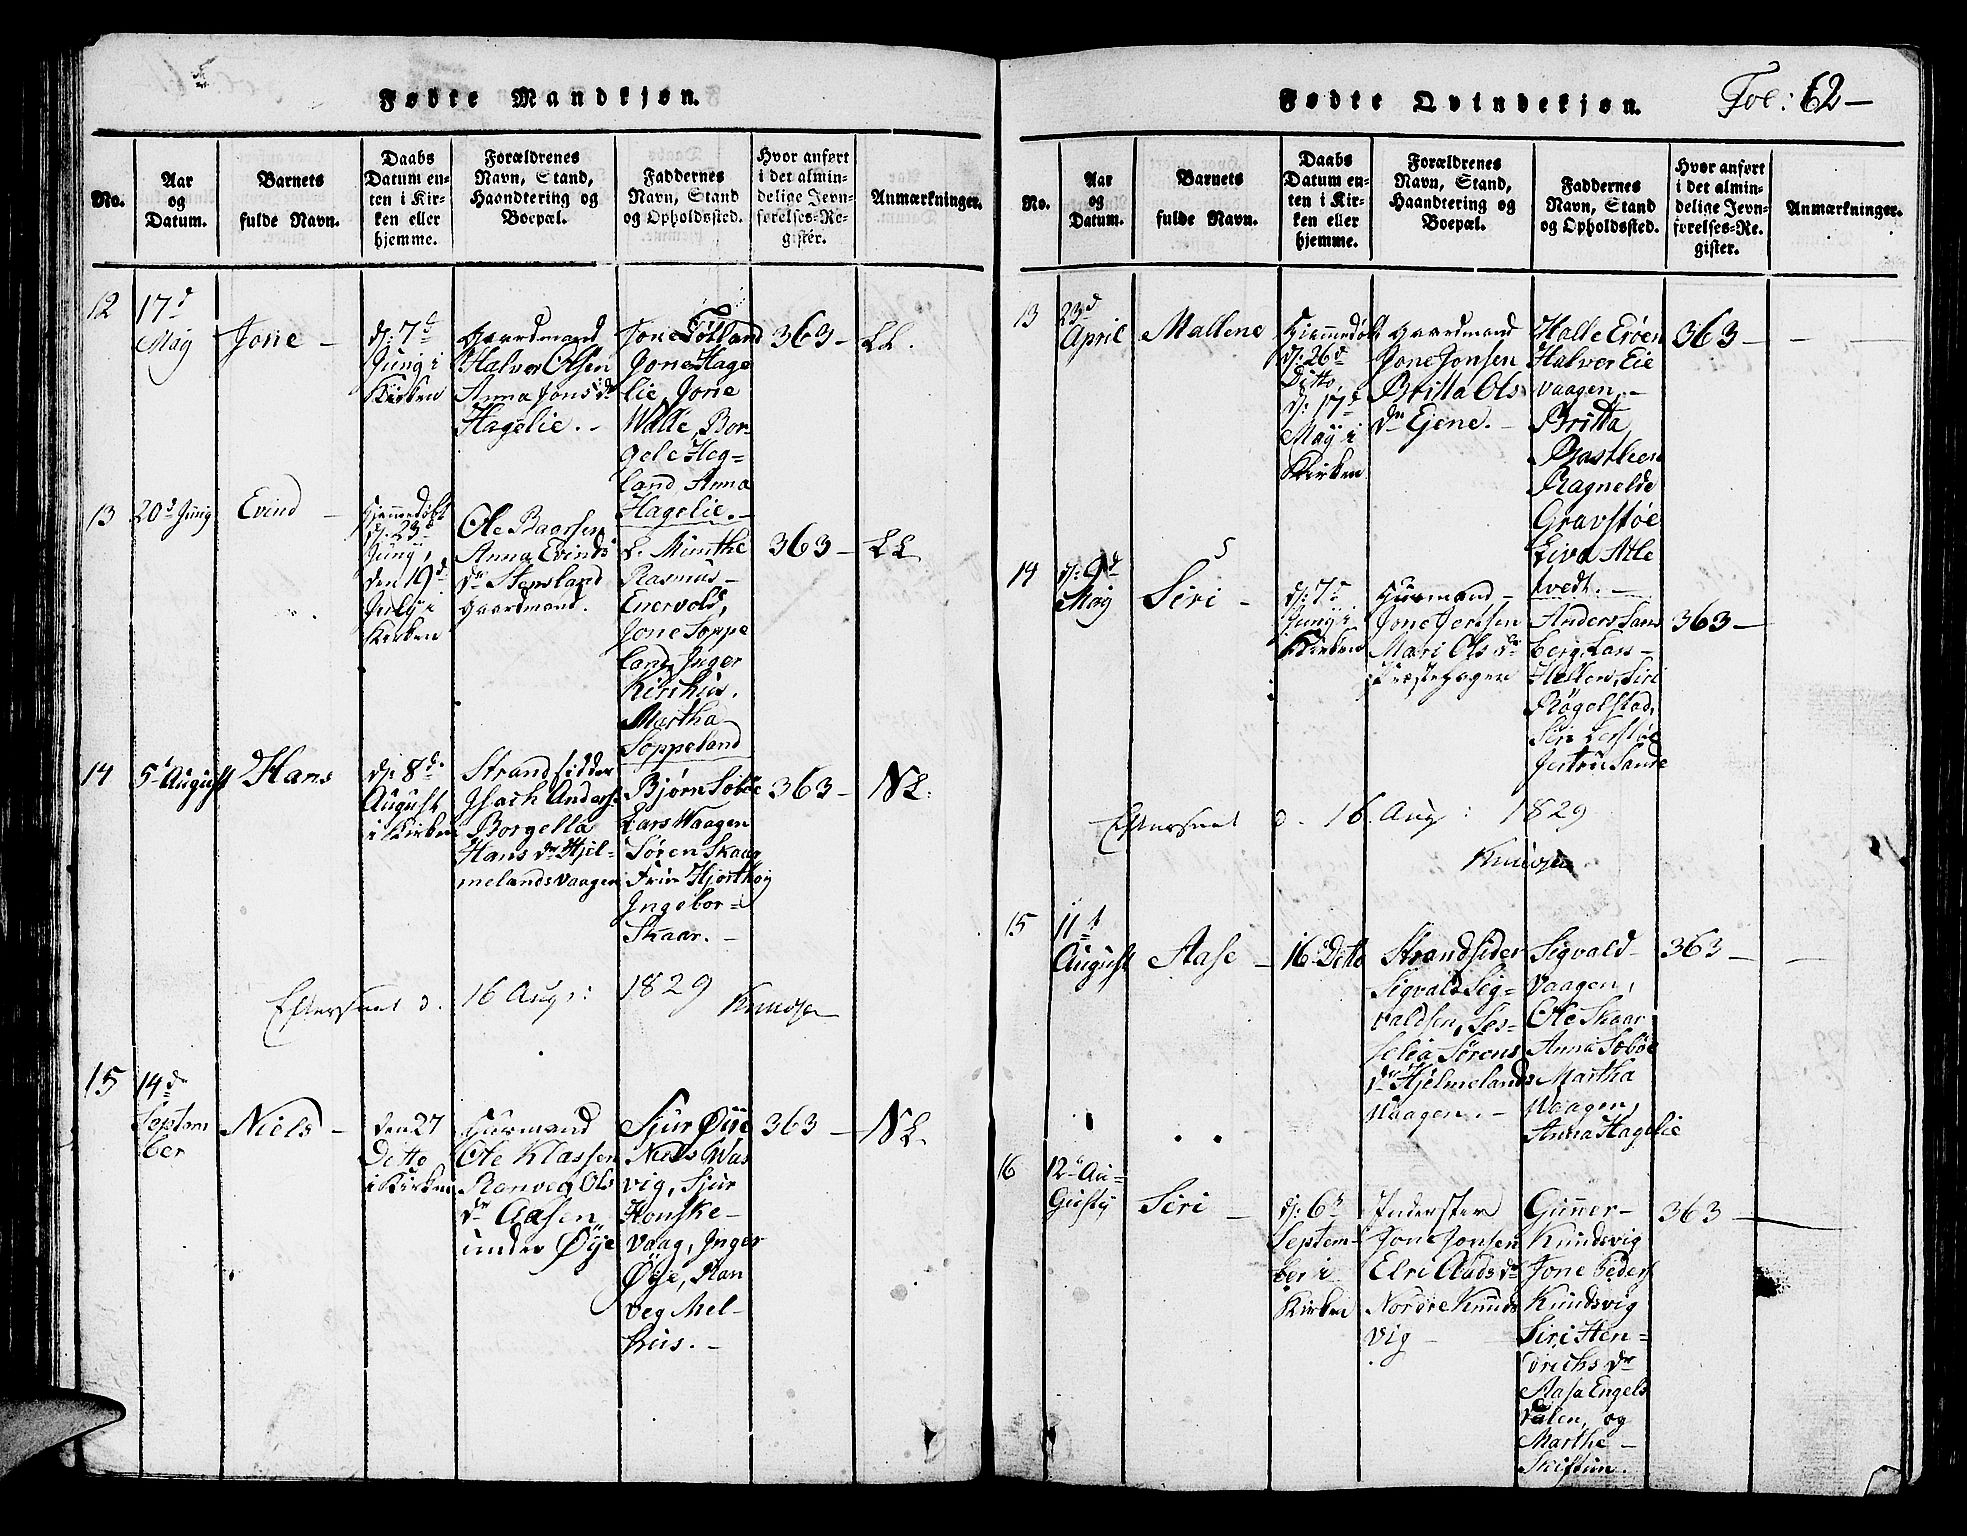 Fødte Mandkjøn.
No.
Aar
og
Datum.
Barnets
fulde Navn.
Daabs
Datum en-
ten i Kir-
ken eller
hjemme.
Forældrenes
Navn, Stand,
Haandtering og
Boepæl.
Faddernes
Navn, Stand
og Opholdssted.
Hvor anført
i det almin-
delige Jevn-
førelses-Re-
gister.
Anmærkninger.
12
17d
May
Jone –
d: 7d
Junij i
Kirken
Gaardmand
Halvor Olsen
Anna Jons dr
Hagelie. –
Jone Tøtland
Jone Hage
lie, Jone
Walle, Bor-
gele Heg=
land, Anna
Hagelie. –
363 –
LL.
13
20d Junij
Evind –
Hjemmedøbt
d: 23d
Junij,
den 19d
Julij i
Kirken
Ole Baarsen
Anna Evinds
dr Stensland
Gaardmand.
L. Munthe
Rasmus –
Enervold,
Jone Soppe
land, Inger
Kirkhus.
Martha
Soppeland
363 –
LL.
14
5d August
Hans
d: 8d
August
i Kirken
Strandsidder
Isach Anders
Borgella
Hans dr Hjel-
melandsvaagen
Bjørn Sobøe
Lars Waagen
Søren Skaar
Frue Hjorthøy
Ingebor-
Skaar. –
363 –
NL.
Efterseet d. 16 Aug: 1829 Knudsen
15
14d
Septem
ber
Niels –
den 27
Ditto
i Kirken
Husmand
Ole Klassen
Ranveg Ols
dr Aasen
under Øye
Sjur Øye
Niels Was
vig, Sjur
Honske-
vaag, Inger
Øye, Ran
veg Mel-
huus. –
363 –
NL.
Fødte Qvindekjøn.
Fol: 62 –
No.
Aar
og
Datum.
Barnets
fulde Navn.
Daabs
Datum en-
ten i Kir-
ken eller
hjemme.
Forældrenes
Navn, Stand,
Haandtering og
Boepæl.
Faddernes
Navn, Stand
og Opholdssted.
Hvor anført
i det almin-
delige Jevn-
førelses-Re-
gister.
Anmærkninger.
13
23d
April
Mallene
Hjemmedøbt
d: 26d
Ditto,
d: 17d
May i
Kirken
Gaardmand
Jone Jonsen
Britta Ols
dr Eiene. –
Halle Erøen
Halver Eie
vaagen. –
Britta
Bastlien
Ragnelde
Gravstøe
Liva Atle
tvedt. –
363 –
14
d: 9d
May
Siri –
d: 7d
Junij i
Kirken
Husmand –
Jone Jertsen
Mari Ols dr
Præstehagen
Anders Sand
berg, Lars –
Hellen, Siri
Røgelstad,
Siri Lerstøe
Jertrue Sande
363 –
Efterseet d. 16. Aug: 1829
Knudsen
15
11t
August
Aase –
16 Ditto
Strandsider
Sigvald Sig=
valdsen, Ses=
selia Sørens
dr Hjelmelands
Waagen. –
Sigvald –
Vaagen,
Ole Skaar
Anna Sobøe
Martha
Waagen,
Anna Hagelie
363 –
16
12d Au=
gusty
Siri –
d: 6d
Septem-
ber i
Kirken
Inderster
Jone Jonsen
Elri Aads dr
Nordre Knuds
vig –
Gunner –
Knudsvig
Jone Peders
Knudsvig
Siri Hen=
drichs dr
Aasa Engels
dalen, og
Marthe –
Skiftun.
363 –